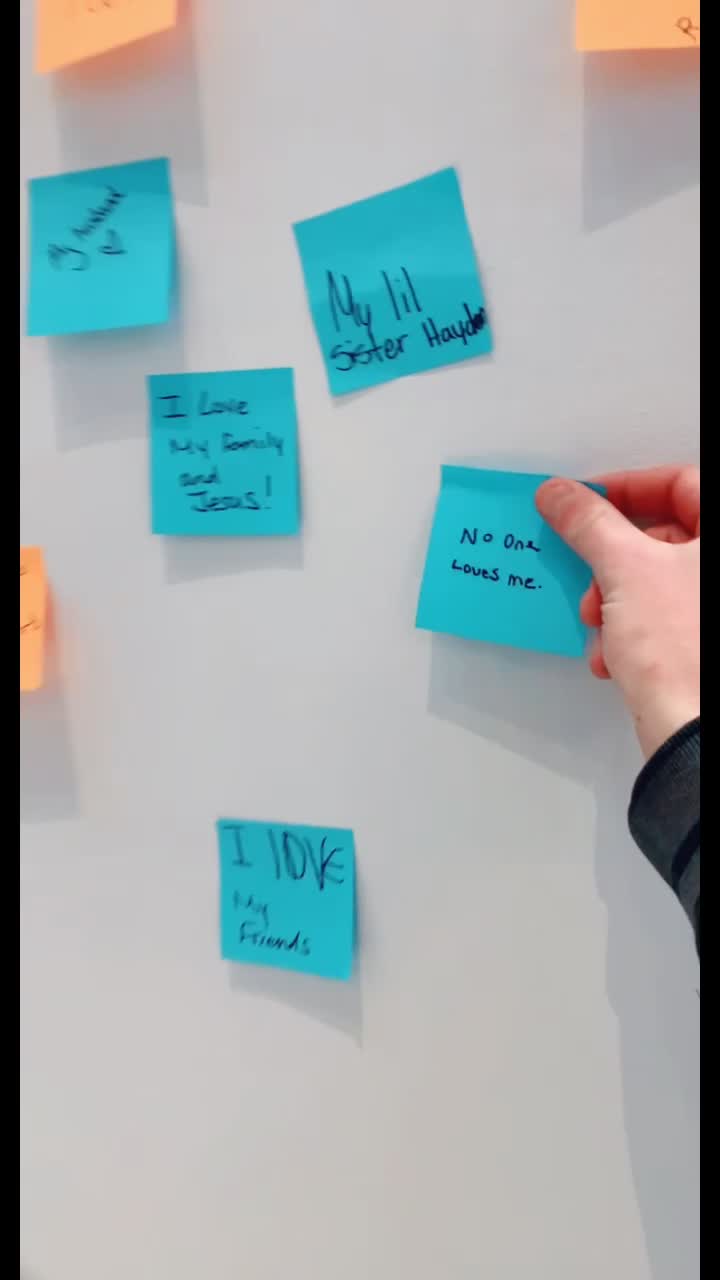 My husband
My lil
sister Hayden
I Love
My family
and
Jesus!
No One
Loves me.
I lOVE
My
Friends